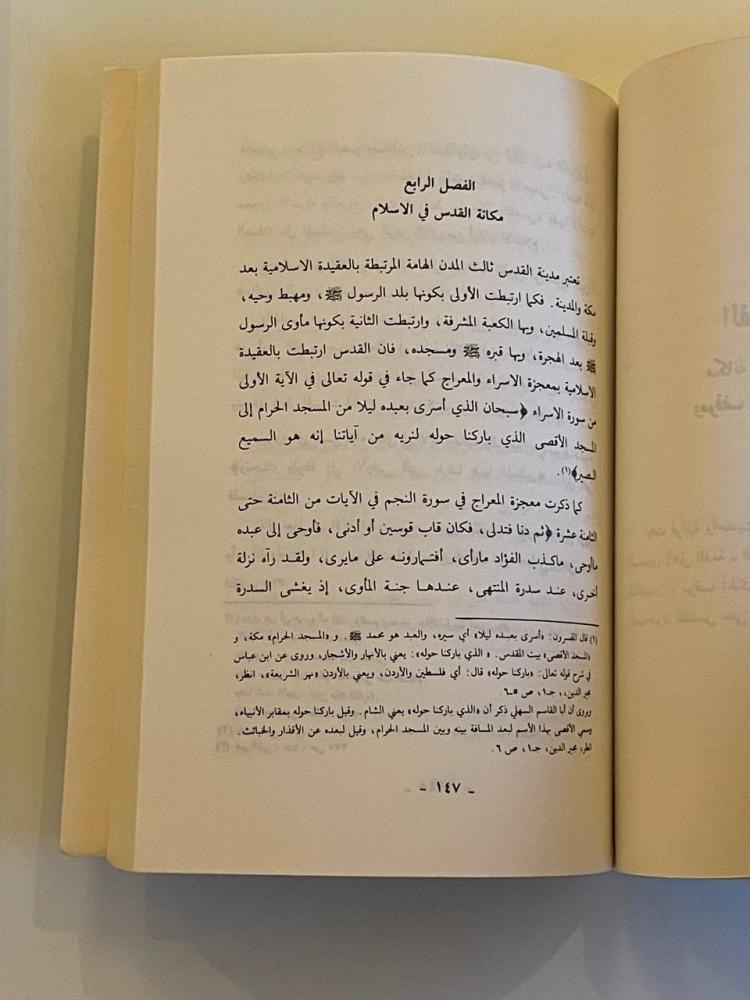 الفصل الرابع
مكانة القدس في الاسلام
تعتبر مدينة القدس ثالث المدن الهامة المرتبطة بالعقيدة الاسلامية بعد
مكة والمدينة. فكما ارتبطت الأولى بكونها بلد الرسول ﷺ، ومهبط وحيه،
وقبلة المسلمين، وبها الكعبة المشرفة، وارتبطت الثانية بكونها مأوى الرسول
ﷺ بعد الهجرة، وبها قبره ﷺ ومسجده، فان القدس ارتبطت بالعقيدة
الاسلامية بمعجزة الاسراء والمعراج كما جاء في قوله تعالى في الآية الأولى
من سورة الاسراء ﴿سبحان الذي أسرى بعبده ليلا من المسجد الحرام إلى
المسجد الأقصى الذي باركنا حوله لنريه من آياتنا إنه هو السميع
البصير﴾(١).
كما ذكرت معجزة المعراج في سورة النجم في الآيات من الثامنة حتى
الثامنة عشرة ﴿ثم دنا فتدلى، فكان قاب قوسين أو أدنى، فأوحى إلى عبده
ماأوحى، ماكذب الفؤاد مارأى، أفتمارونه على مايرى، ولقد رآه نزلة
أخرى، عند سدرة المنتهى، عندها جنة المأوى، إذ يغشى السدرة
(١) قال المفسرون: «أسرى بعبده ليلا» أي سيره، والعبد هو محمد ﷺ. و «المسجد الحرام» مكة، و
«المسجد الأقصى» بيت المقدس. «الذي باركنا حوله»: يعني بالأنهار والأشجار، وروى عن ابن عباس
في شرح قوله تعالى: «باركنا حوله» قال: أي فلسطين والأردن، ويعني بالأردن «نهر الشريعة»، انظر،
مجير الدين،، جـ١، ص ٥-٦.
ويروى أن أبا القاسم السهلي ذكر أن «الذي باركنا حوله» يعني الشام. وقيل باركنا حوله بمقابر الأنبياء،
وسمي الأقصى بهذا الأسم لبعد المسافة بينه وبين المسجد الحرام، وقيل لبعده عن الأقذار والخبائث.
انظر: مجير الدين، جـ١، ص ٦.
- ١٤٧ -